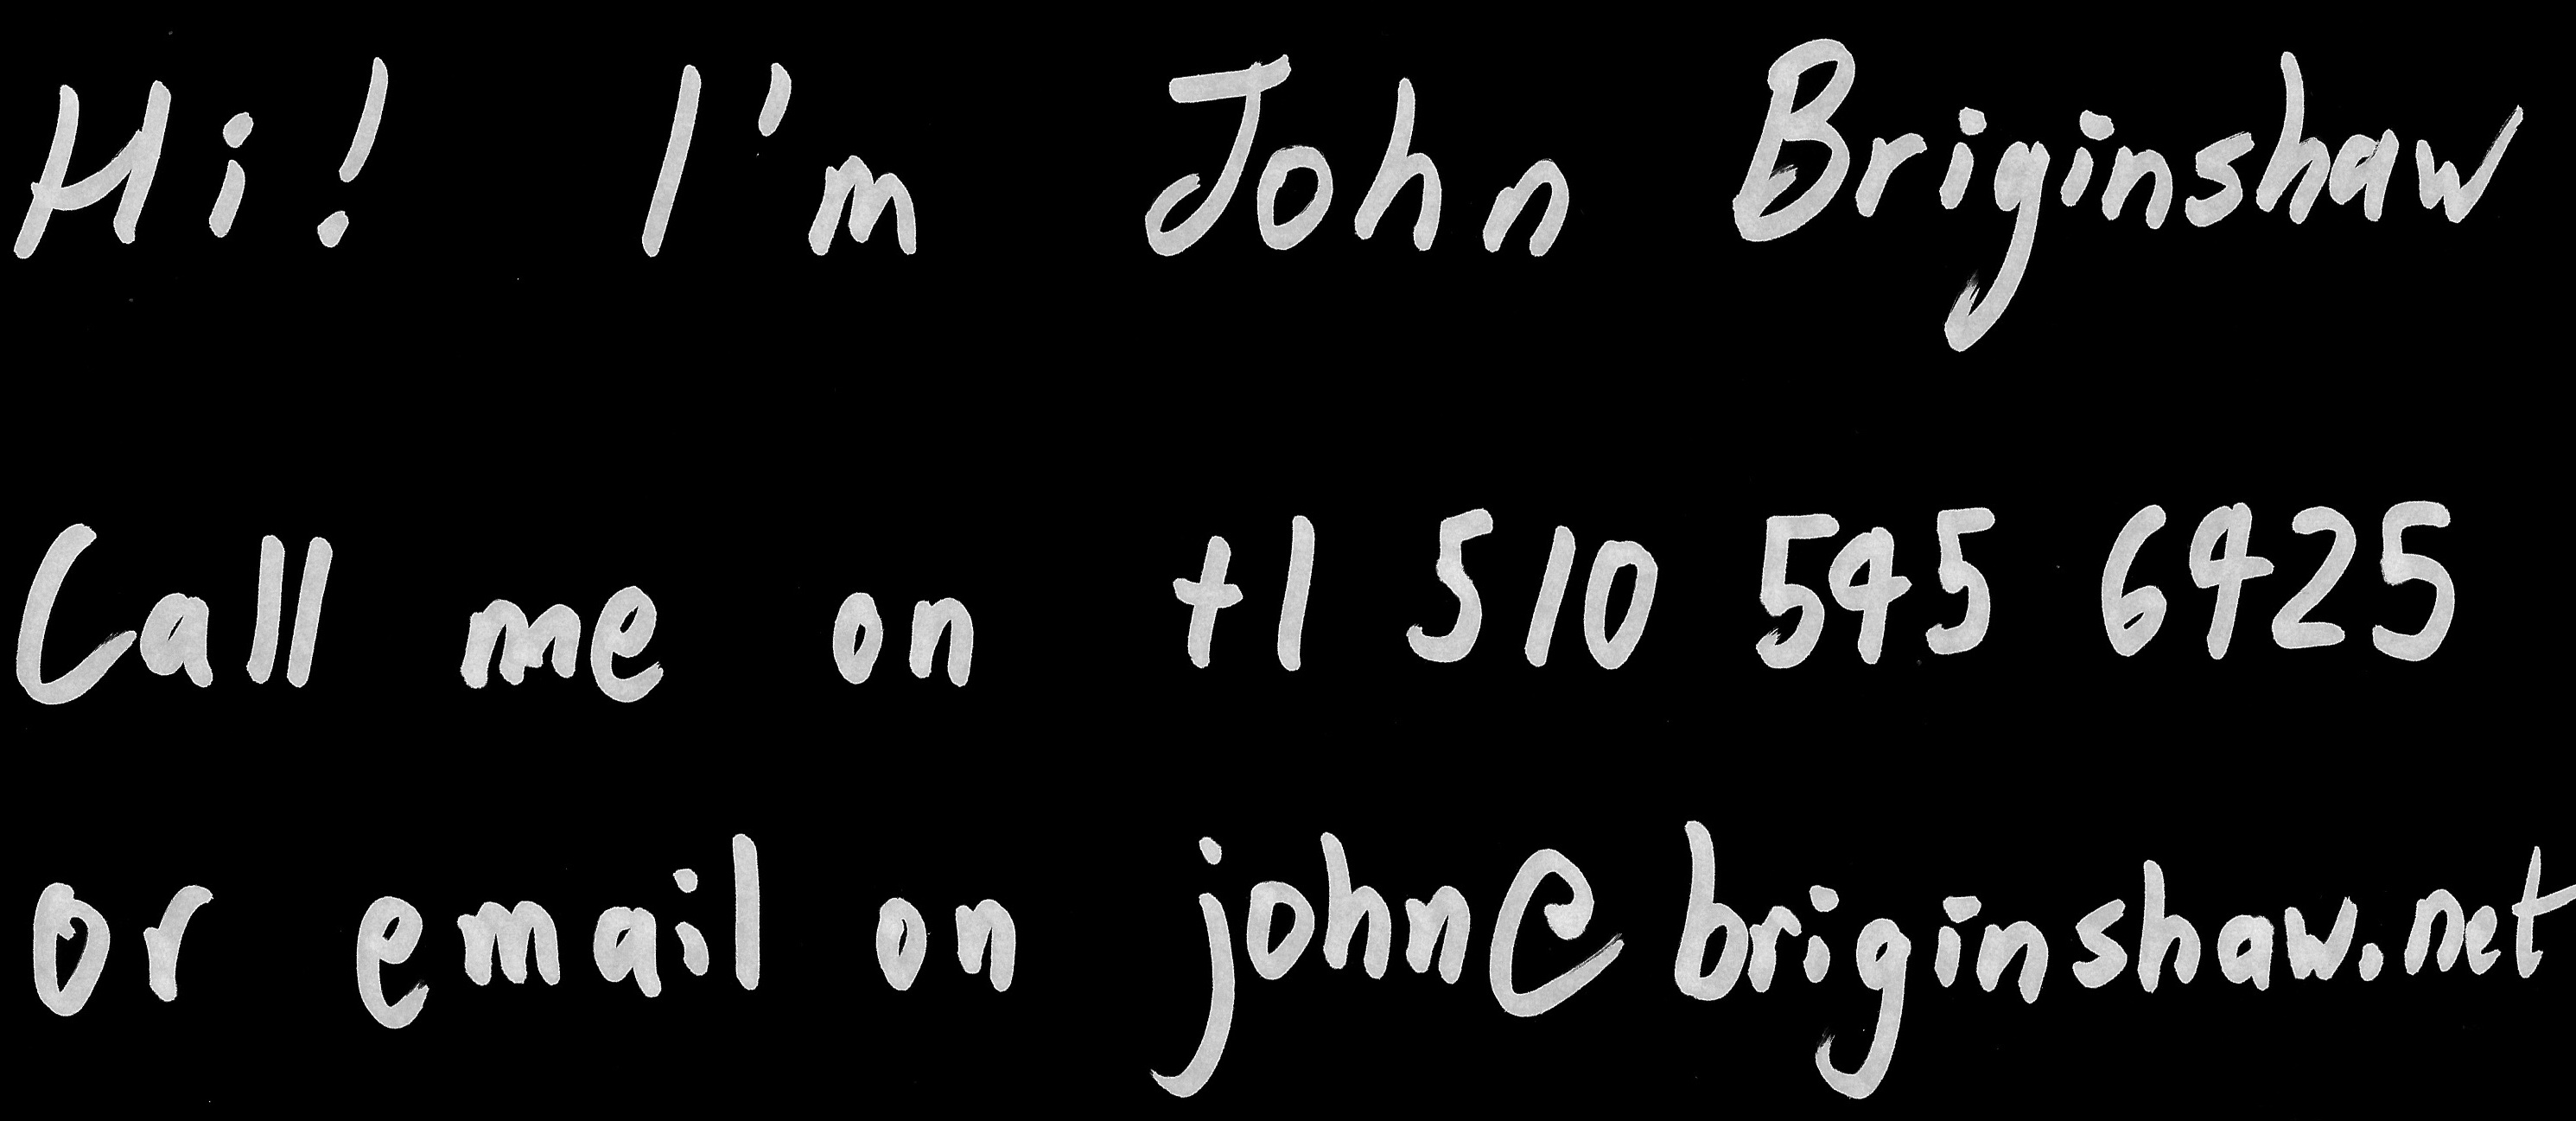 Hi! I'm John Briginshaw
Call me on +1 510 545 6425
or email on john@briginshaw.net